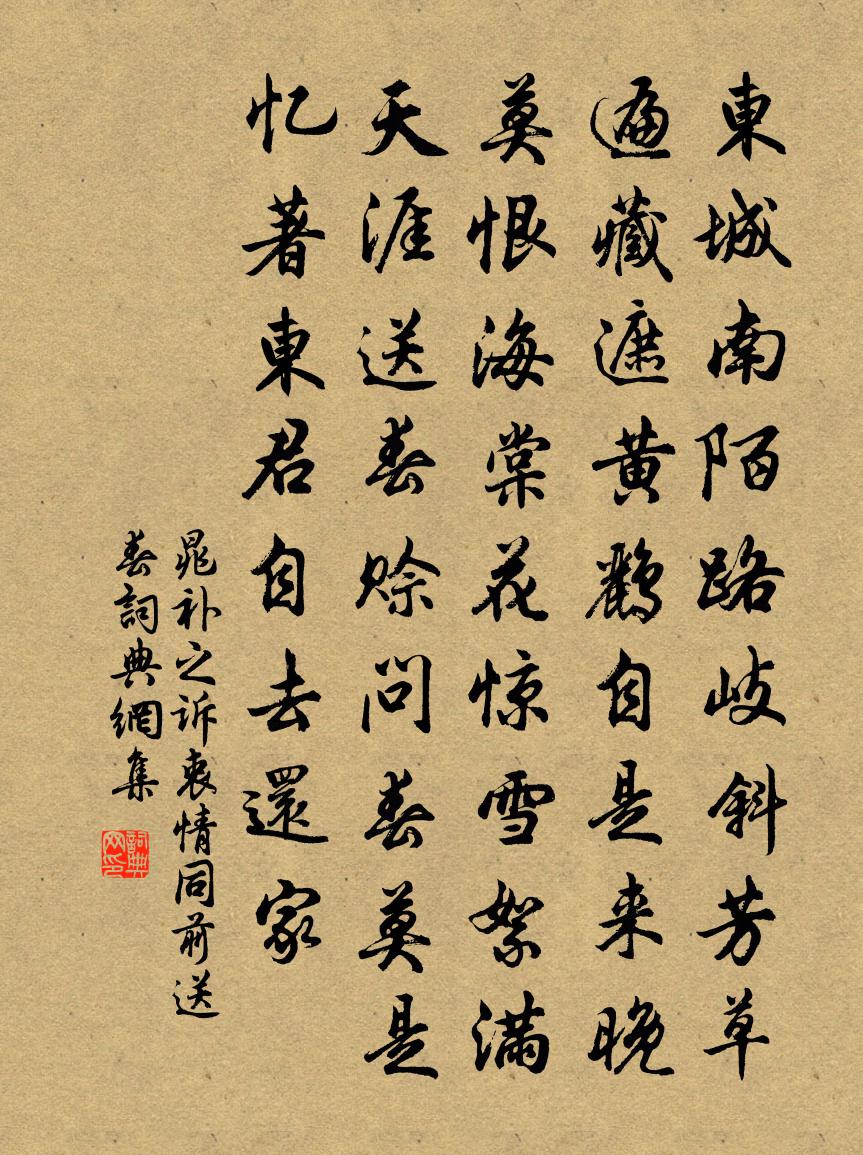 東城南陌路歧斜芳草
遍藏遮黄鸝自是来晚
莫恨海棠花惊雪絮滿
天涯送春賒问春莫是
忆著東君自去還家
晁补之訴衷情同前送
春詞典網集
詞典网印